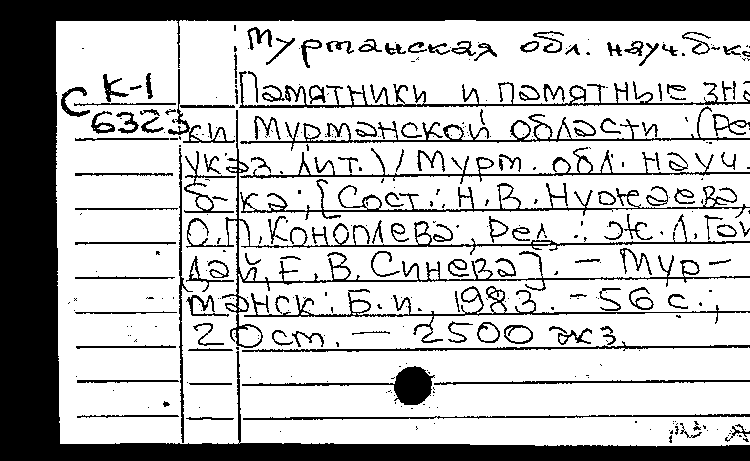 Мурманская обл. науч. б-ка
К-1
С
6323
Памятники и памятные зна
ки Мурманской области : (Рек
указ. лит.) / Мурм. обл. науч.
б-ка ; [Сост.: Н. В. Нужаева,
О.П. Коноплева ; Ред.: Ж. Л. Гай
дай, Е. В. Синева]. — Мур-
манск : Б. и., 1983. — 56 с. ;
20 ст. — 2500 экз.